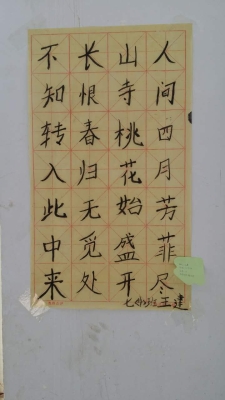 人间四月芳菲尽
山寺桃花始盛开
长恨春归无觅处
不知转入此中来
王建